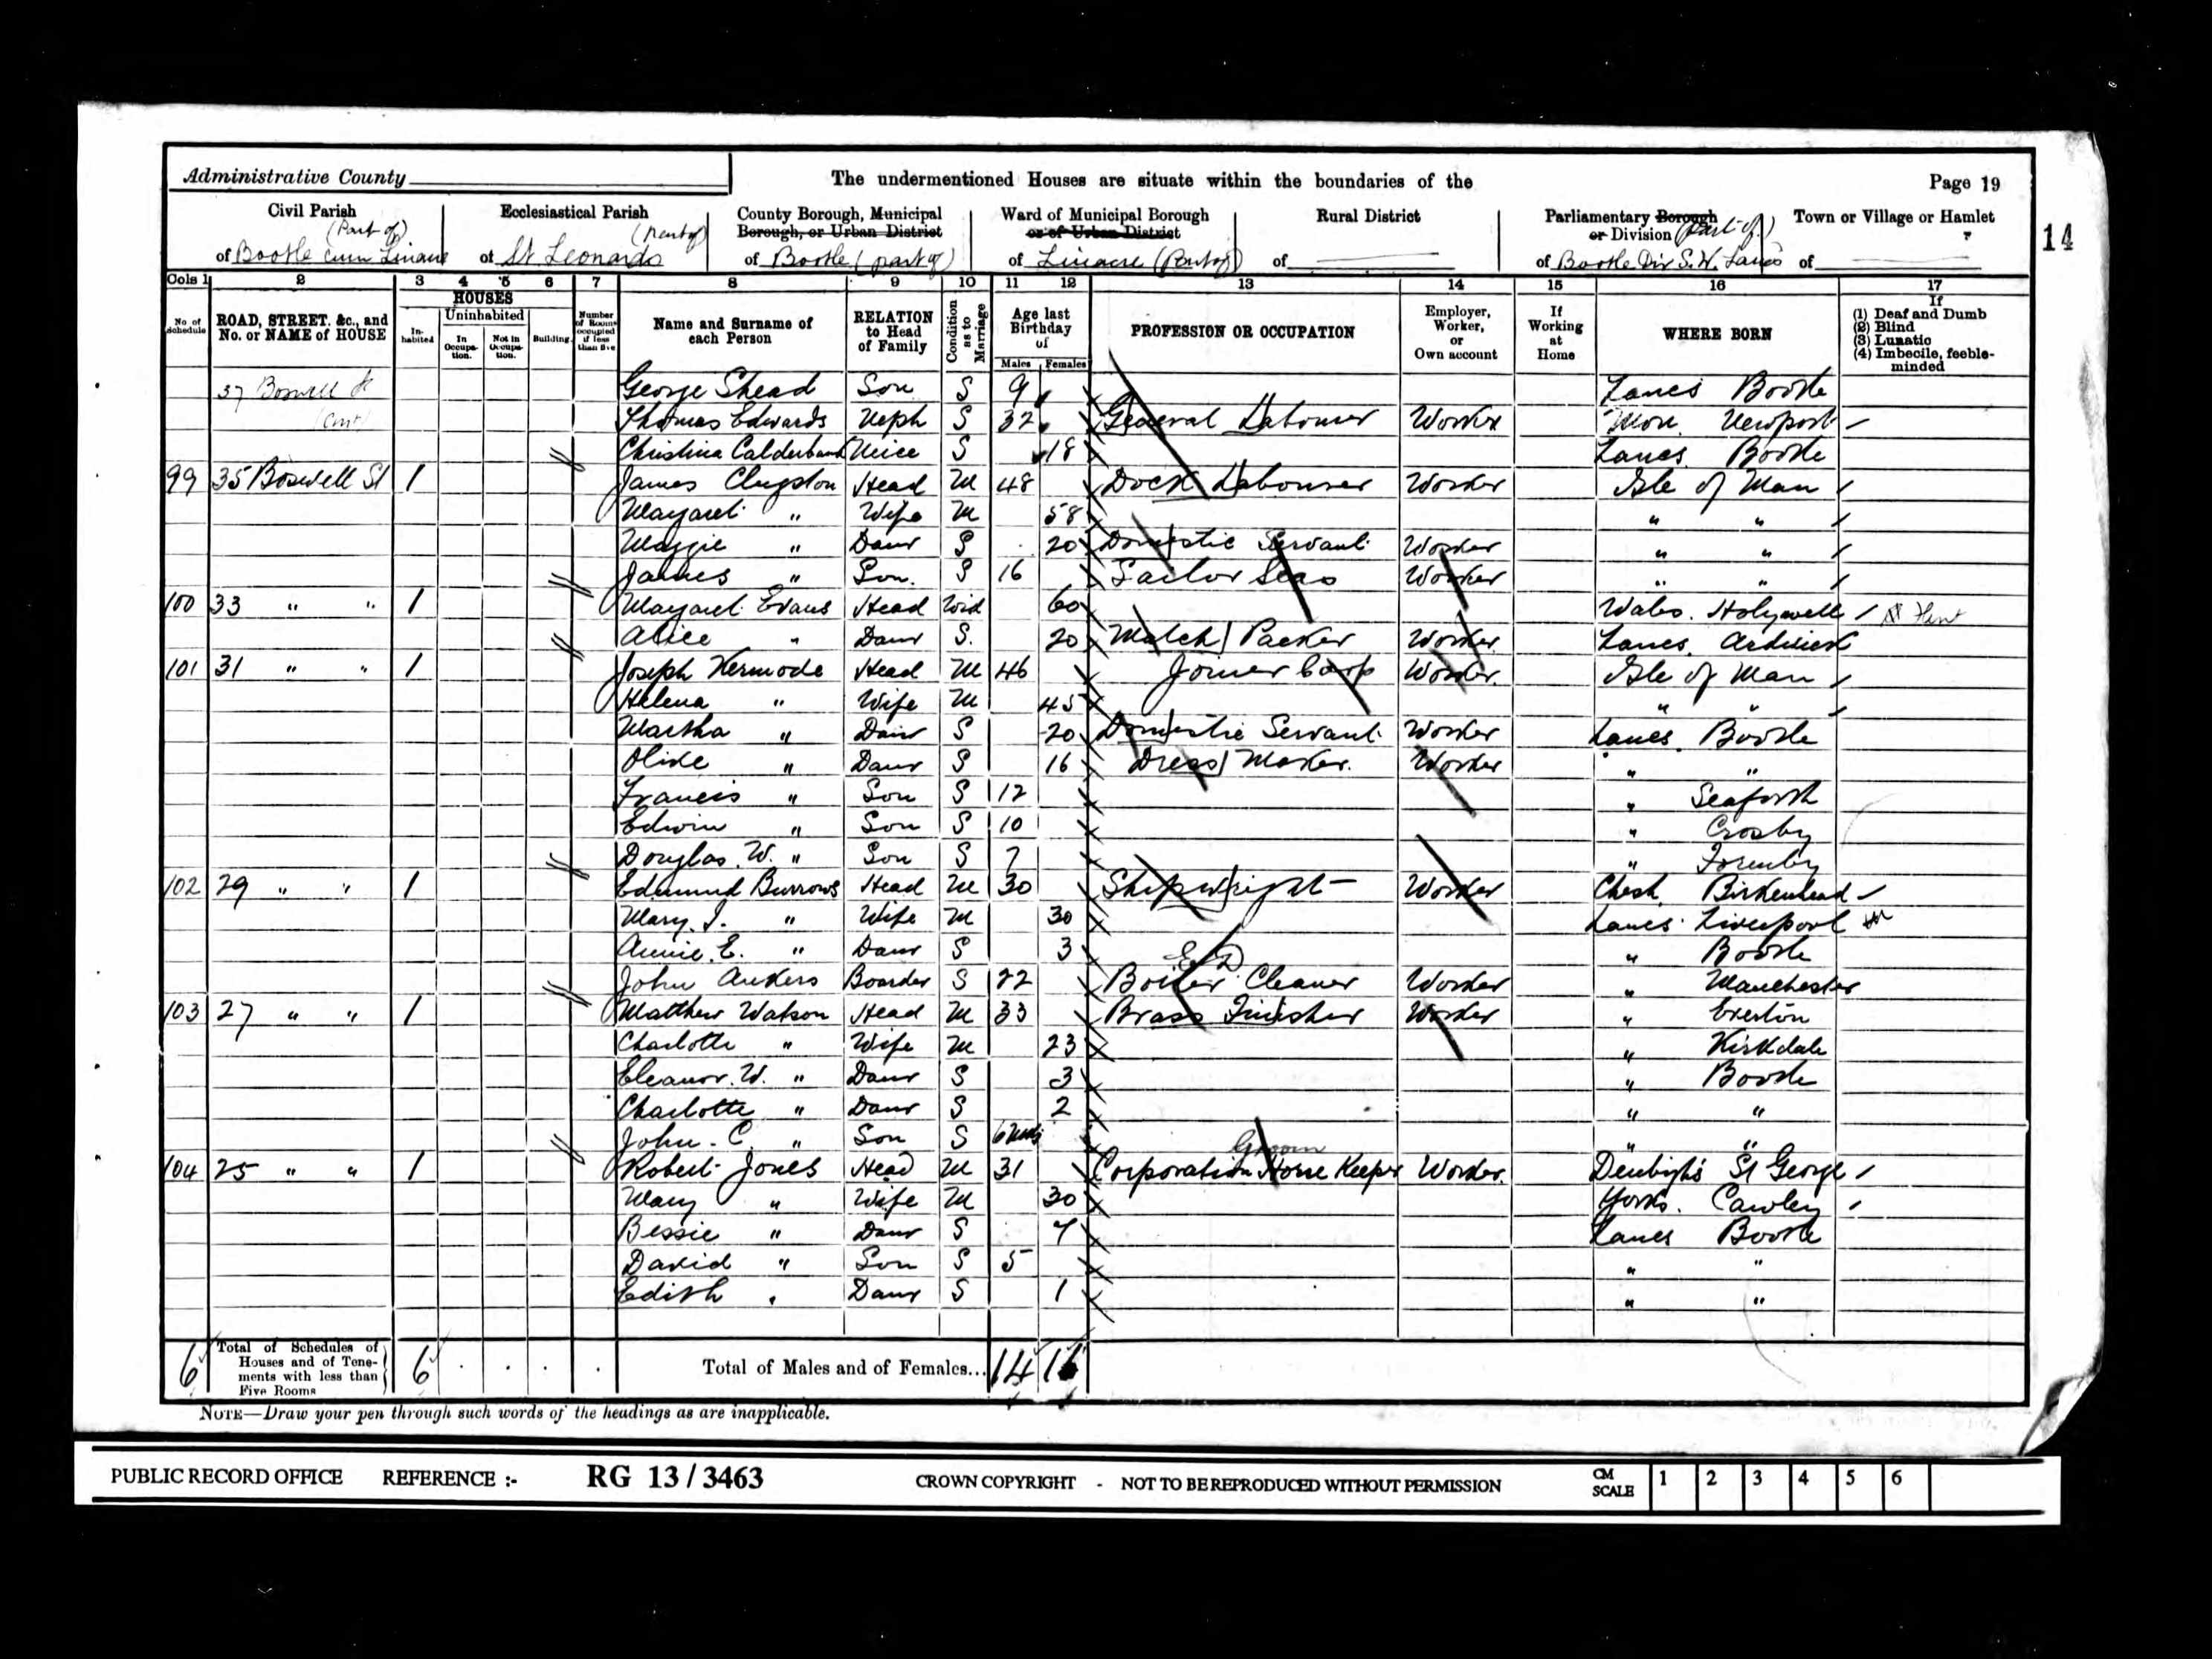 Administrative County The undermentioned Houses are situate within the boundaries of the Page 19
Civil Parish Ecclesiastical Parish County Borough, Municipal Borough, or Urban District Ward of Municipal Borough or of Urban District Rural District Parliamentary Borough or Division (part of) Town or Village or Hamlet
(Part of) (Part of)
of Bootle cum Linacre of St Leonards of Bootle (part of) of Linacre (Part of) of of Bootle Div S.W. Lancs of
14
Cols 1 2 3 4 5 6 7 8 9 10 11 12 13 14 15 16 17
No of Schedule ROAD, STREET, &c., and No. or NAME of HOUSE HOUSES Inhabited Uninhabited In Occupation. Not in Occupation. Building. Number of Rooms occupied if less than five Name and Surname of each Person RELATION to Head of Family Condition as to Marriage Age last Birthday of Males Females PROFESSION OR OCCUPATION Employer, Worker, or Own account If Working at Home WHERE BORN If (1) Deaf and Dumb (2) Blind (3) Lunatic (4) Imbecile, feeble-minded
37 Boswell St George Shead Son S 9 Lancs Bootle
(Cont) Thomas Edwards Neph S 32 General Labourer Worker Mon. Newport
Christina Calderbank Neice S 18 Lancs. Bootle
99 35 Boswell St 1 James Clugston Head M 48 Dock Labourer Worker Isle of Man
Margaret " Wife M 58 " "
Maggie " Daur S 20 Domestic Servant Worker " "
James " Son. S 16 Sailor Seas Worker " "
100 33 " " 1 Margaret Evans Head Wid 60 Wales. Holywell Flint
Alice " Daur S. 20 Match Packer Worker Lancs. Ardwick
101 31 " " 1 Joseph Kermode Head M 46 Joiner Carp Worker. Isle of Man
Helena " Wife M 45 " "
Martha " Daur S 20 Domestic Servant Worker Lancs. Bootle
Olive " Daur S 16 Dress Maker. Worker " "
Francis " Son S 12 " Seaforth
Edwin " Son S 10 " Crosby
Douglas. W. " Son S 7 " Formby
102 29 " " 1 Edmund Burrows Head M 30 Shipwright Worker Chesh. Birkenhead
Mary. J. " Wife M 30 Lancs. Liverpool
Annie. E. " Daur S 3 " Bootle
John Ankers Boarder S 22 Boiler Cleaner Worker " Manchester
103 27 " " 1 Matthew Watson Head M 33 Brass Finisher Worker " Everton
Charlotte " Wife M 23 " Kirkdale
Eleanor. W. " Daur S 3 " Bootle
Charlotte " Daur S 2 " "
John. C. " Son S " "
Groom
104 25 " " 1 Robert Jones Head M 31 Corporation Horse Keeper Worker. Denbighs St George
Mary " Wife M 30 Yorks. Cawley
Bessie " Daur S 7 Lancs Bootle
David " Son S 5 " "
Edith " Daur S 1 " "
6 Total of Schedules of Houses and of Tenements with less than Five Rooms 6 Total of Males and of Females... 14 16
NOTE—Draw your pen through such words of the headings as are inapplicable.
PUBLIC RECORD OFFICE REFERENCE :- RG 13 / 3463 CROWN COPYRIGHT - NOT TO BE REPRODUCED WITHOUT PERMISSION CM SCALE 1 2 3 4 5 6